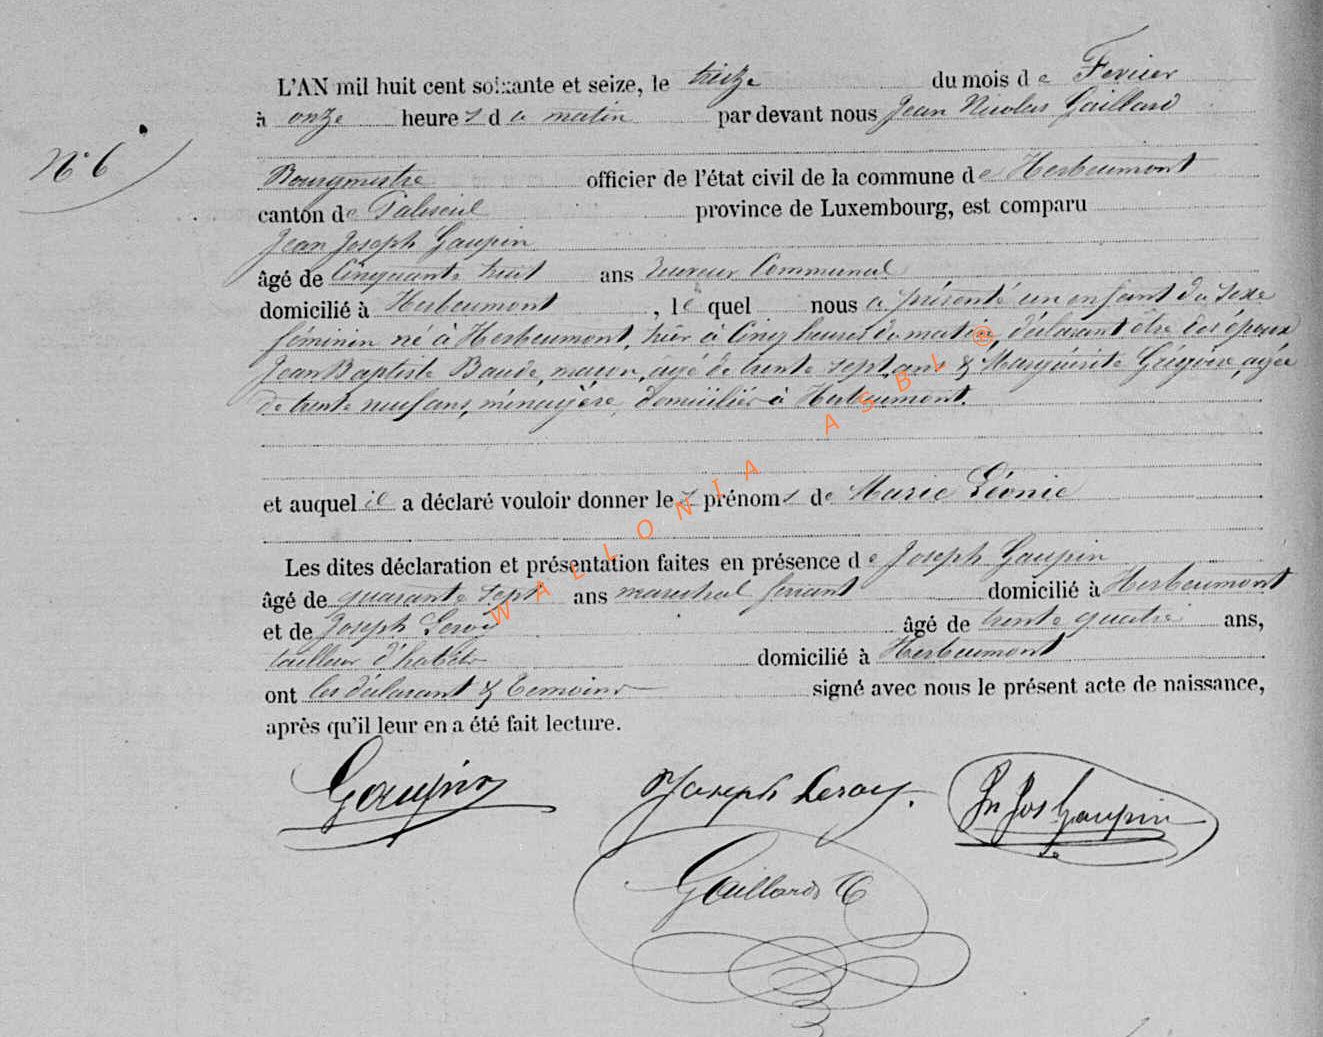 L'AN mil huit cent soixante et seize, le treize du mois de Fevrier
à onze heures du matin par devant nous Jean Nicolas Gaillard
N° 6
Bourgmestre officier de l'état civil de la commune de Herbeumont
canton de Paliseul province de Luxembourg, est comparu
Jean Joseph Gaupin
âgé de Cinquante huit ans Receveur Communal
domicilié à Herbeumont, le quel nous a présenté un enfant du sexe
féminin né à Herbeumont, hier à Cinq heures du matin, déclarant être des époux
Jean Baptiste Baude, maçon, âgé de trente sept ans & Marguérite Grégoire, agée
de trente neuf ans, ménagère, domiciliés à Herbeumont.
et auquel il a déclaré vouloir donner les prénoms de Marie Léonie
Les dites déclaration et présentation faites en présence de Joseph Gaupin
âgé de quarante sept ans marechal ferrant domicilié à Herbeumont
et de Joseph Leroy âgé de trente quatre ans,
tailleur d'habits domicilié à Herbeumont
ont les déclarant & temoins signé avec nous le présent acte de naissance,
après qu'il leur en a été fait lecture.
Gaupin Joseph Leroy. Jn Jos Gaupin
Gaillard
WALLONIA ASBL ®